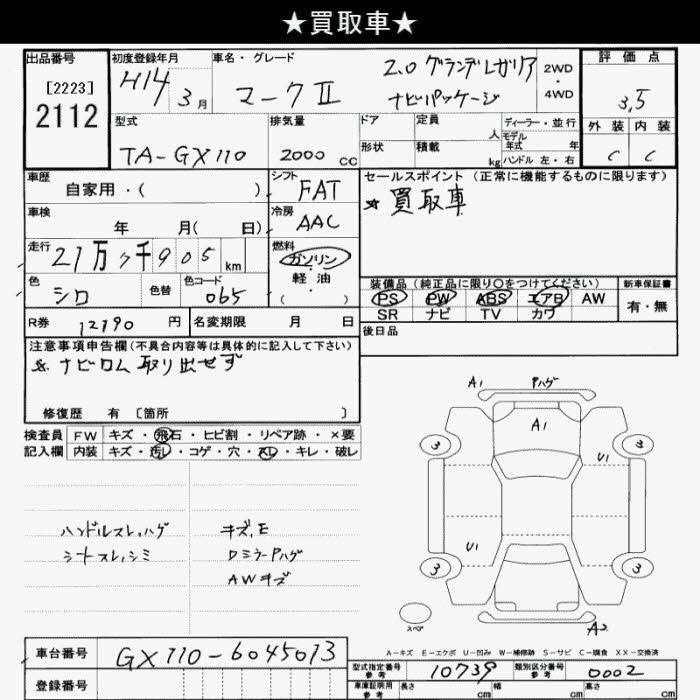 ★買取車★
出品番号
[2223]
2112
初度登録年月
H14 3月
車名・グレード
マークⅡ
2.0 グランデレガリア
ナビパッケージ
2WD
・
4WD
評価点
3.5
外装 内装
C C
型式
TA-GX110
排気量
2000 cc
ドア
形状
定員 人
積載 kg
ディーラー・並行
モデル
年式 年
ハンドル 左・右
車歴
自家用・( )
シフト
FAT
セールスポイント (正常に機能するものに限ります)
☆ 買取車
車検
年 月( 日)
冷房
AAC
走行
21万7千905 km
燃料
ガソリン
・
軽油
( )
色
シロ
色替
色コード
065
装備品 (純正品に限り○をつけてください)
PS PW ABS エアB AW
SR ナビ TV カワ
新車保証書
有・無
R券 12790 円
名変期限 月 日
後日品
注意事項申告欄(不具合内容等は具体的に記入して下さい)
※ ナビロム取り出せず
修復歴 有 〔箇所 〕
検査員
記入欄
FW キズ・飛石・ヒビ割・リペア跡・×要
内装 キズ・汚レ・コゲ・穴・スレ・キレ・破レ
ハンドルスレ,ハゲ
シートスレ,シミ
キズ,E
DミラーPハゲ
AWキズ
A1 Pハゲ
A1
3 3
U1
U1
3 3
スペア
A2
A-キズ E-エクボ U-凹み W-補修跡 S-サビ C-腐食 XX-交換済
車台番号
GX110-6045013
登録番号
型式指定番号
参考
10739
類別区分番号
参考
0002
車庫証明用
参考
長さ cm
幅 cm
高さ cm